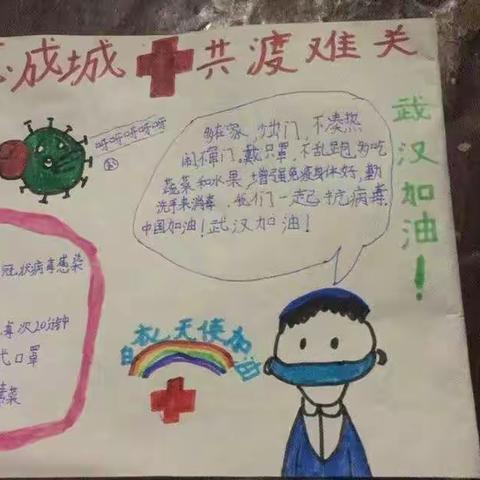 成城 共渡难关
呀呀呀呀呀
在家, 少出门, 不凑热
闹 门, 戴口罩, 不乱跑, 多吃
蔬菜和水果, 增强免疫身体好, 勤
洗手来消毒, 我们一起抗病毒.
中国加油! 武汉加油!
武汉加油!
冠状病毒感染
每次20分钟
口罩
菜
白衣天使加油